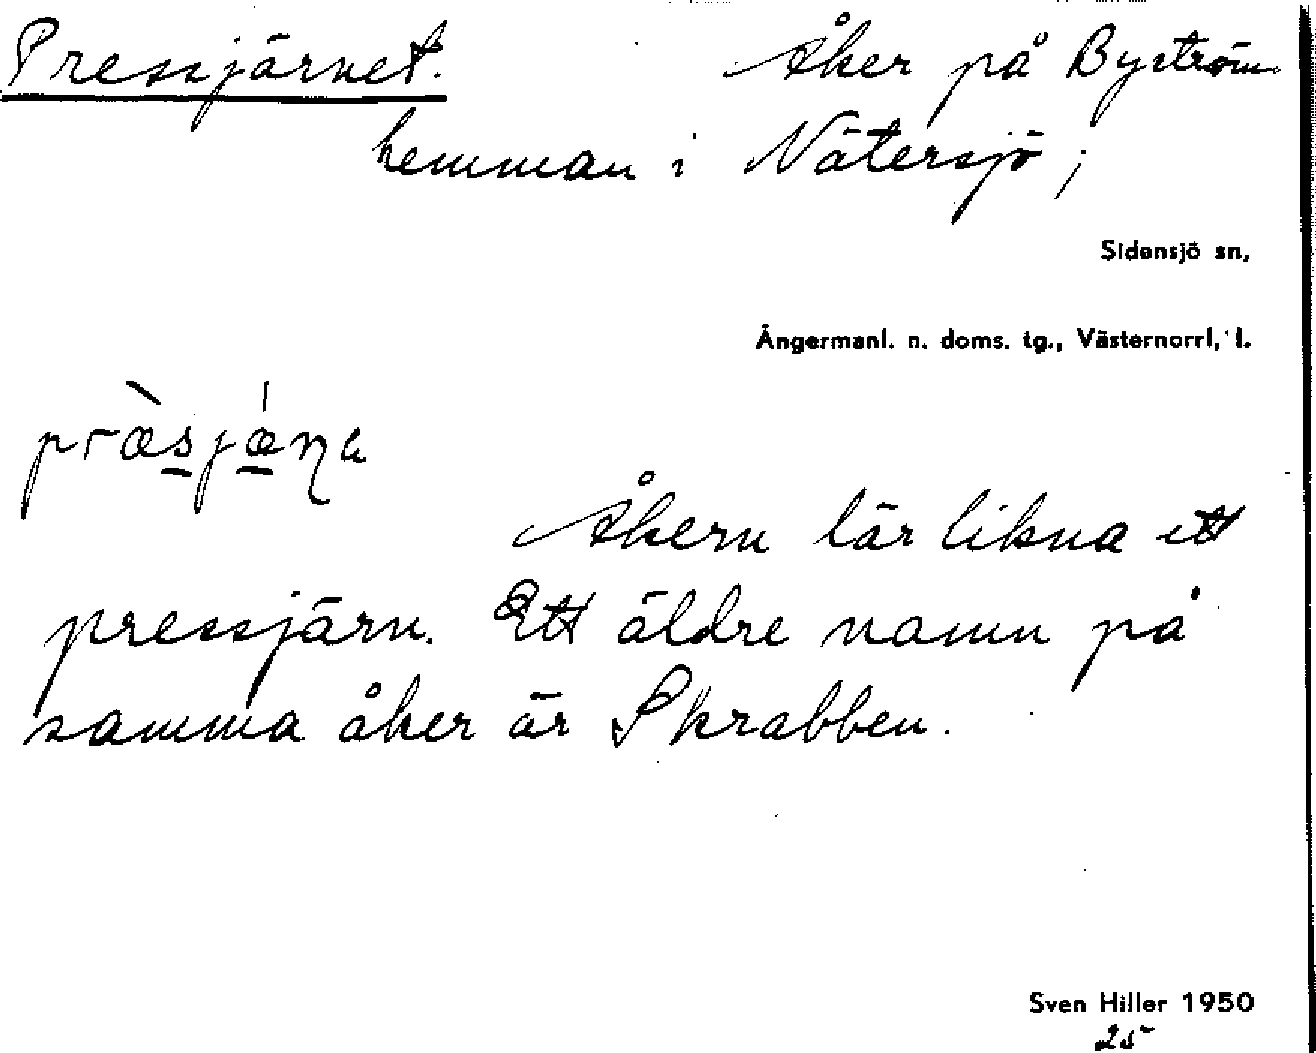 Pressjärnet. Åker på Byström
hemman i Nätersjö;
Sidensjö sn,
Ångermanl. n. doms. tg., Västernorrl, l.
præ̀sjǽṇa
Åkern lär likna ett
pressjärn. Ett äldre namn på
samma åker är Skrabben.
Sven Hiller 1950
25